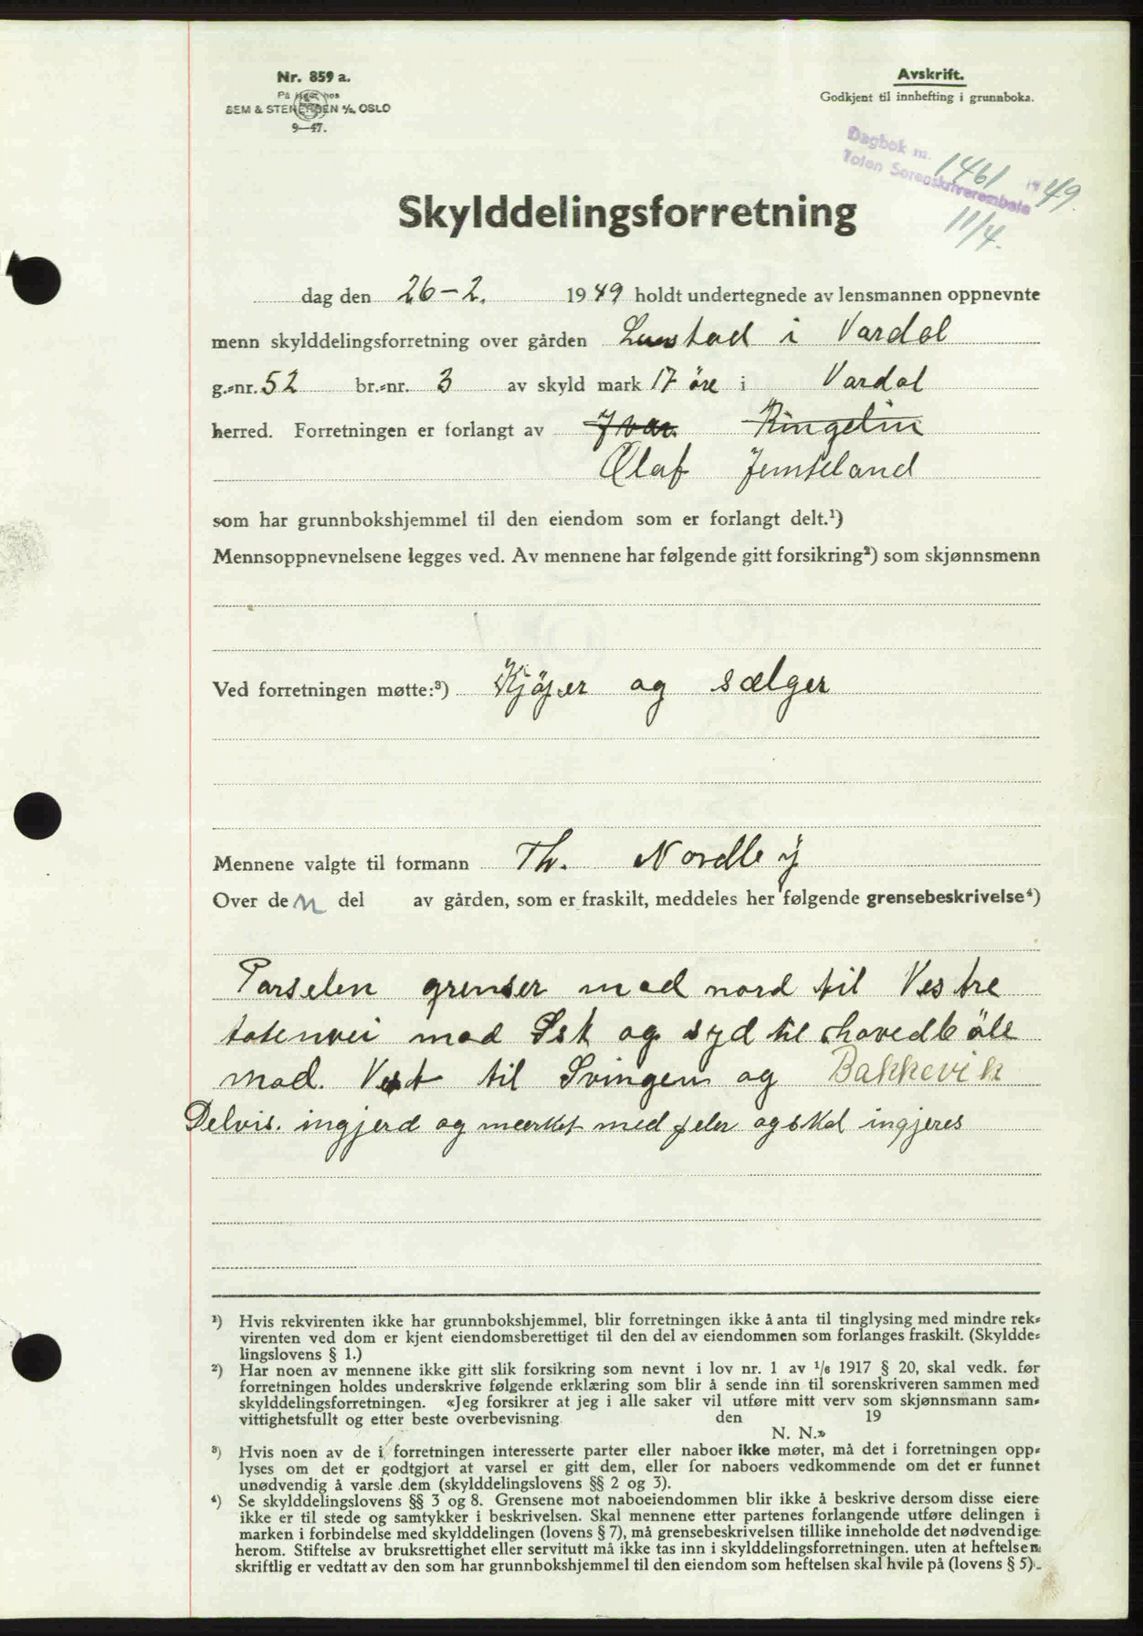 Nr. 859 a.
På lager hos
SEM & STENERSEN A/S, OSLO
9—47.
Avskrift.
Godkjent til innhefting i grunnboka.
Dagbok nr. 1461 1949.
Toten Sorenskriverembete
11/4.
Skylddelingsforretning
dag den 26-2. 1949 holdt undertegnede av lensmannen oppnevnte
menn skylddelingsforretning over gården i Vardal
g.-nr. 52 br.-nr. 3 av skyld mark 17 øre i Vardal
herred. Forretningen er forlangt av Ivar Ringelin
Olaf
som har grunnbokshjemmel til den eiendom som er forlangt delt.¹)
Mennsoppnevnelsene legges ved. Av mennene har følgende gitt forsikring²) som skjønnsmenn
Ved forretningen møtte:³) Kjöper og sælger
Mennene valgte til formann Th. Nordby
Over den del av gården, som er fraskilt, meddeles her følgende grensebeskrivelse⁴)
Parselen grenser mod nord til Vestre
totenvei mod Öst og syd til hovedböle
mod. Vest til Svingen og Bakkevik
Delvis. ingjerd og merket med peler og skal ingjeres
¹) Hvis rekvirenten ikke har grunnbokshjemmel, blir forretningen ikke å anta til tinglysing med mindre rek-
virenten ved dom er kjent eiendomsberettiget til den del av eiendommen som forlanges fraskilt. (Skyldde-
lingslovens § 1.)
²) Har noen av mennene ikke gitt slik forsikring som nevnt i lov nr. 1 av 1/6 1917 § 20, skal vedk. før
forretningen holdes underskrive følgende erklæring som blir å sende inn til sorenskriveren sammen med
skylddelingsforretningen. «Jeg forsikrer at jeg i alle saker vil utføre mitt verv som skjønnsmann sam-
vittighetsfullt og etter beste overbevisning den 19
N. N.»
³) Hvis noen av de i forretningen interesserte parter eller naboer ikke møter, må det i forretningen opp-
lyses om det er godtgjort at varsel er gitt dem, eller for naboers vedkommende om det er funnet
unødvendig å varsle dem (skylddelingslovens §§ 2 og 3).
⁴) Se skylddelingslovens §§ 3 og 8. Grensene mot naboeiendommen blir ikke å beskrive dersom disse eiere
ikke er til stede og samtykker i beskrivelsen. Skal mennene etter partenes forlangende utføre delingen i
marken i forbindelse med skylddelingen (lovens § 7), må grensebeskrivelsen tillike inneholde det nødvendige
herom. Stiftelse av bruksrettighet eller servitutt må ikke tas inn i skylddelingsforretningen. uten at heftelsen
skriftlig er vedtatt av den som har grunnbokshjemmel til den eiendom som heftelsen skal hvile på (lovens § 5).